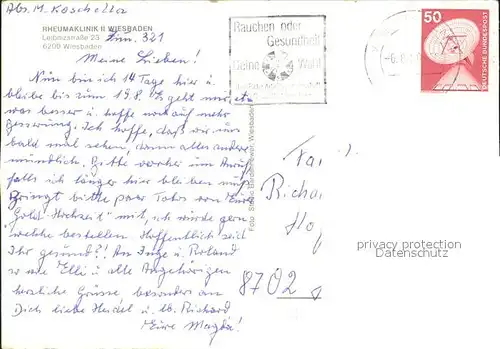 Abs. M. Koschella
RHEUMAKLINIK II WIESBADEN
Leibnizstraße 23
6200 Wiesbaden
Zim. 321
Meine Lieben!
Nun bin ich 14 Tage hier u.
bleibe bis zum 19.8. Es geht mir et-
was besser u. hoffe noch auf mehr
Besserung. Ich hoffe, daß wir uns
bald mal sehen, dann alles andere
mündlich. Bitte vorher im Anruf
falls ich länger hier bleiben muß
Bringt bitte paar Fotos von Eurer
"Gold. Hochzeit" mit, ich würde gern
welche bestellen. Hoffentlich seid
Ihr gesund?! An Inge u. Roland
so wie Elli u. alle Angehörigen
herzliche Grüsse besonders an
Dich liebe Heidel u. lb. Richard
Eure Magda!
Rauchen oder
Gesundheit
Deine Wahl
-6.8
50
DEUTSCHE BUNDESPOST
Foto
Wiesbaden
Fa
Richa
Ho
8702
privacy protection
Datenschutz